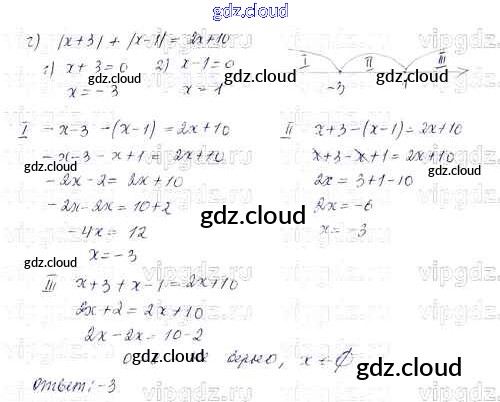 gdz.cloud
г) |x+3| + |x-1| = 2x+10
gdz.cloud
1) x+3=0 2) x-1=0
x=-3 x=1
I II III
-3 1
gdz.cloud
I -x-3 -(x-1) = 2x+10
-x-3-x+1 = 2x+10
-2x-2 = 2x+10
-2x-2x = 10+2
-4x = 12
x = -3
II x+3-(x-1) = 2x+10
x+3-x+1 = 2x+10
2x = 3+1-10
2x = -6
x = -3
gdz.cloud
gdz.cloud
gdz.cloud
gdz.cloud
gdz.cloud
III x+3+x-1 = 2x+10
2x+2 = 2x+10
2x-2x = 10-2
верно, x = ∅
gdz.cloud
gdz.cloud
Ответ: -3